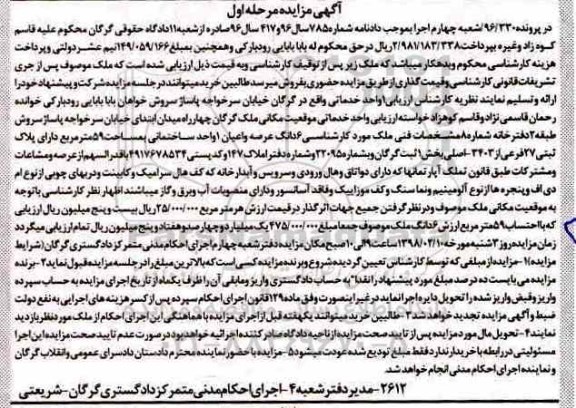 آگهی مزایده مرحله اول
در پرونده ۹۶/۳۳۰/شعبه چهارم اجرا بموجب دادنامه شماره ۷۸۵سال ۹۶و۴۱۷ سال ۹۶صادره از شعبه ۱۱دادگاه حقوقی گرگان محکوم علیه قاسم
کوه زاد وغیره بپرداخت ۲/۹۸۱/۱۸۳/۳۳۸ریال در حق محکوم له بابا بابایی رودبارکی وهمچنین بمبلغ ۱۴۹/۰۵۹/۱۶۶نیم عشر دولتی وپرداخت
هزینه کارشناسی محکوم وبدهکار میباشد که ملک زیر پس از توقیف کارشناسی وبه قیمت ذیل ارزیابی شده است که ملک موصوف پس از جری
تشریفات قانونی کارشناسی وقیمت گذاری از طریق مزایده حضوری بفروش میرسد طالبین خرید میتوانند در جلسه مزایده شرکت و پیشنهاد خود را
ارائه و تسلیم نمایند نظریه کارشناس ارزیابی واحد خدماتی واقع در گرگان خیابان سرخواجه پاساژ سروش خواهان بابا بابایی رودبارکی خوانده
رحمان قاسمی نژاد وقاسم کوهزاد خواسته ارزیابی واحد خدماتی موقعیت مکانی ملک گرگان چهارراه میدان ابتدای خیابان سرخواجه پاساژ سروش
طبقه ۲دفترخانه شماره ۸مشخصات فنی ملک مورد کارشناسی ۶دانگ عرصه واعیان ۱واحد ساختمانی بمساحت ۵۹مترمربع دارای پلاک
ثبتی ۲۷فرعی از ۳۴۰۳-اصلی بخش ۱ثبت گرگان وبشماره ۲۲۰۹۵وشماره دفتر املاک ۱۴۷وکدپستی ۴۹۱۷۶۷۸۵۳۴باقدرالسهم از عرصه ومشاعات
ومشترکات طبق قانون تملک آپارتمانها که دارای دواتاق وهال ورودی وسرویس وآبدارخانه که کف هال سرامیک وکابینت ودربهای چوبی از نوع ام
دی اف وپنجره ها از نوع آلومینیم ونما سنگ وکف موزاییک وفاقد آسانسور ودارای منصوبات آب وبرق وگاز میباشند اظهار نظر کارشناسی باتوجه
به موقعیت مکانی ملک موصوف ودرنظرگرفتن جمیع جهات اثرگذار در قیمت ارزش هر متر مربع ۲۵/۰۰۰/۰۰۰ریال بیست وپنج میلیون ریال ارزیابی
که بااحتساب ۵۹متر مربع ارزش ۶دانگ ملک موصوف جمعا مبلغ ۱/۴۷۵/۰۰۰/۰۰۰یک میلیارد و چهارصد وهفتاد وپنج میلیون ریال تمام ارزیابی میگردد
زمان مزایده روز ۳شنبه مورخه ۱۳۹۸/۰۲/۱۰ساعت ۹الی ۱۰صبح مکان مزایده دفتر شعبه چهارم اجرای احکام مدنی متمرکز دادگستری گرگان (شرایط
مزایده) ۱-مزایده از مبلغی که توسط کارشناس تعیین گردیده شروع وبرنده مزایده کسی است که بالاترین مبلغ را در جلسه مزایده قبول نماید ۲-برنده
مزایده می بایست ده درصد مبلغ مورد پیشنهاد را نقدا" به حساب دادگستری واریز ومابقی آن را ظرف یکماه از تاریخ اجرای مزایده به حساب سپرده
واریز وقبض واریز شده را تحویل دایره اجرا نماید در غیر اینصورت وفق ماده ۱۲۹قانون اجرای احکام سپرده پس از کسر هزینه های اجرایی به نفع دولت
ضبط وآگهی مزایده تجدید خواهد شد ۳-طالبین خرید میتوانند یکهفته قبل از اجرای مزایده با هماهنگی این اجرای احکام از ملک مورد نظر بازدید
نمایند ۴-تحویل مال مورد مزایده پس از تایید صحت مزایده از ناحیه دادگاه صادر کننده اجرائیه خواهد بود در صورت عدم تایید صحت مزایده این اجرا
مسئولیتی در رابطه با خریدار ندارد فقط مبلغ تودیع شده عودت میشود ۵-مزایده با حضور نماینده محترم دادستان دادسرای عمومی وانقلاب گرگان
و نماینده اجرای احکام مدنی انجام خواهد شد.
۲۶۱۲-مدیر دفتر شعبه ۴-اجرای احکام مدنی متمرکز دادگستری گرگان-شریعتی